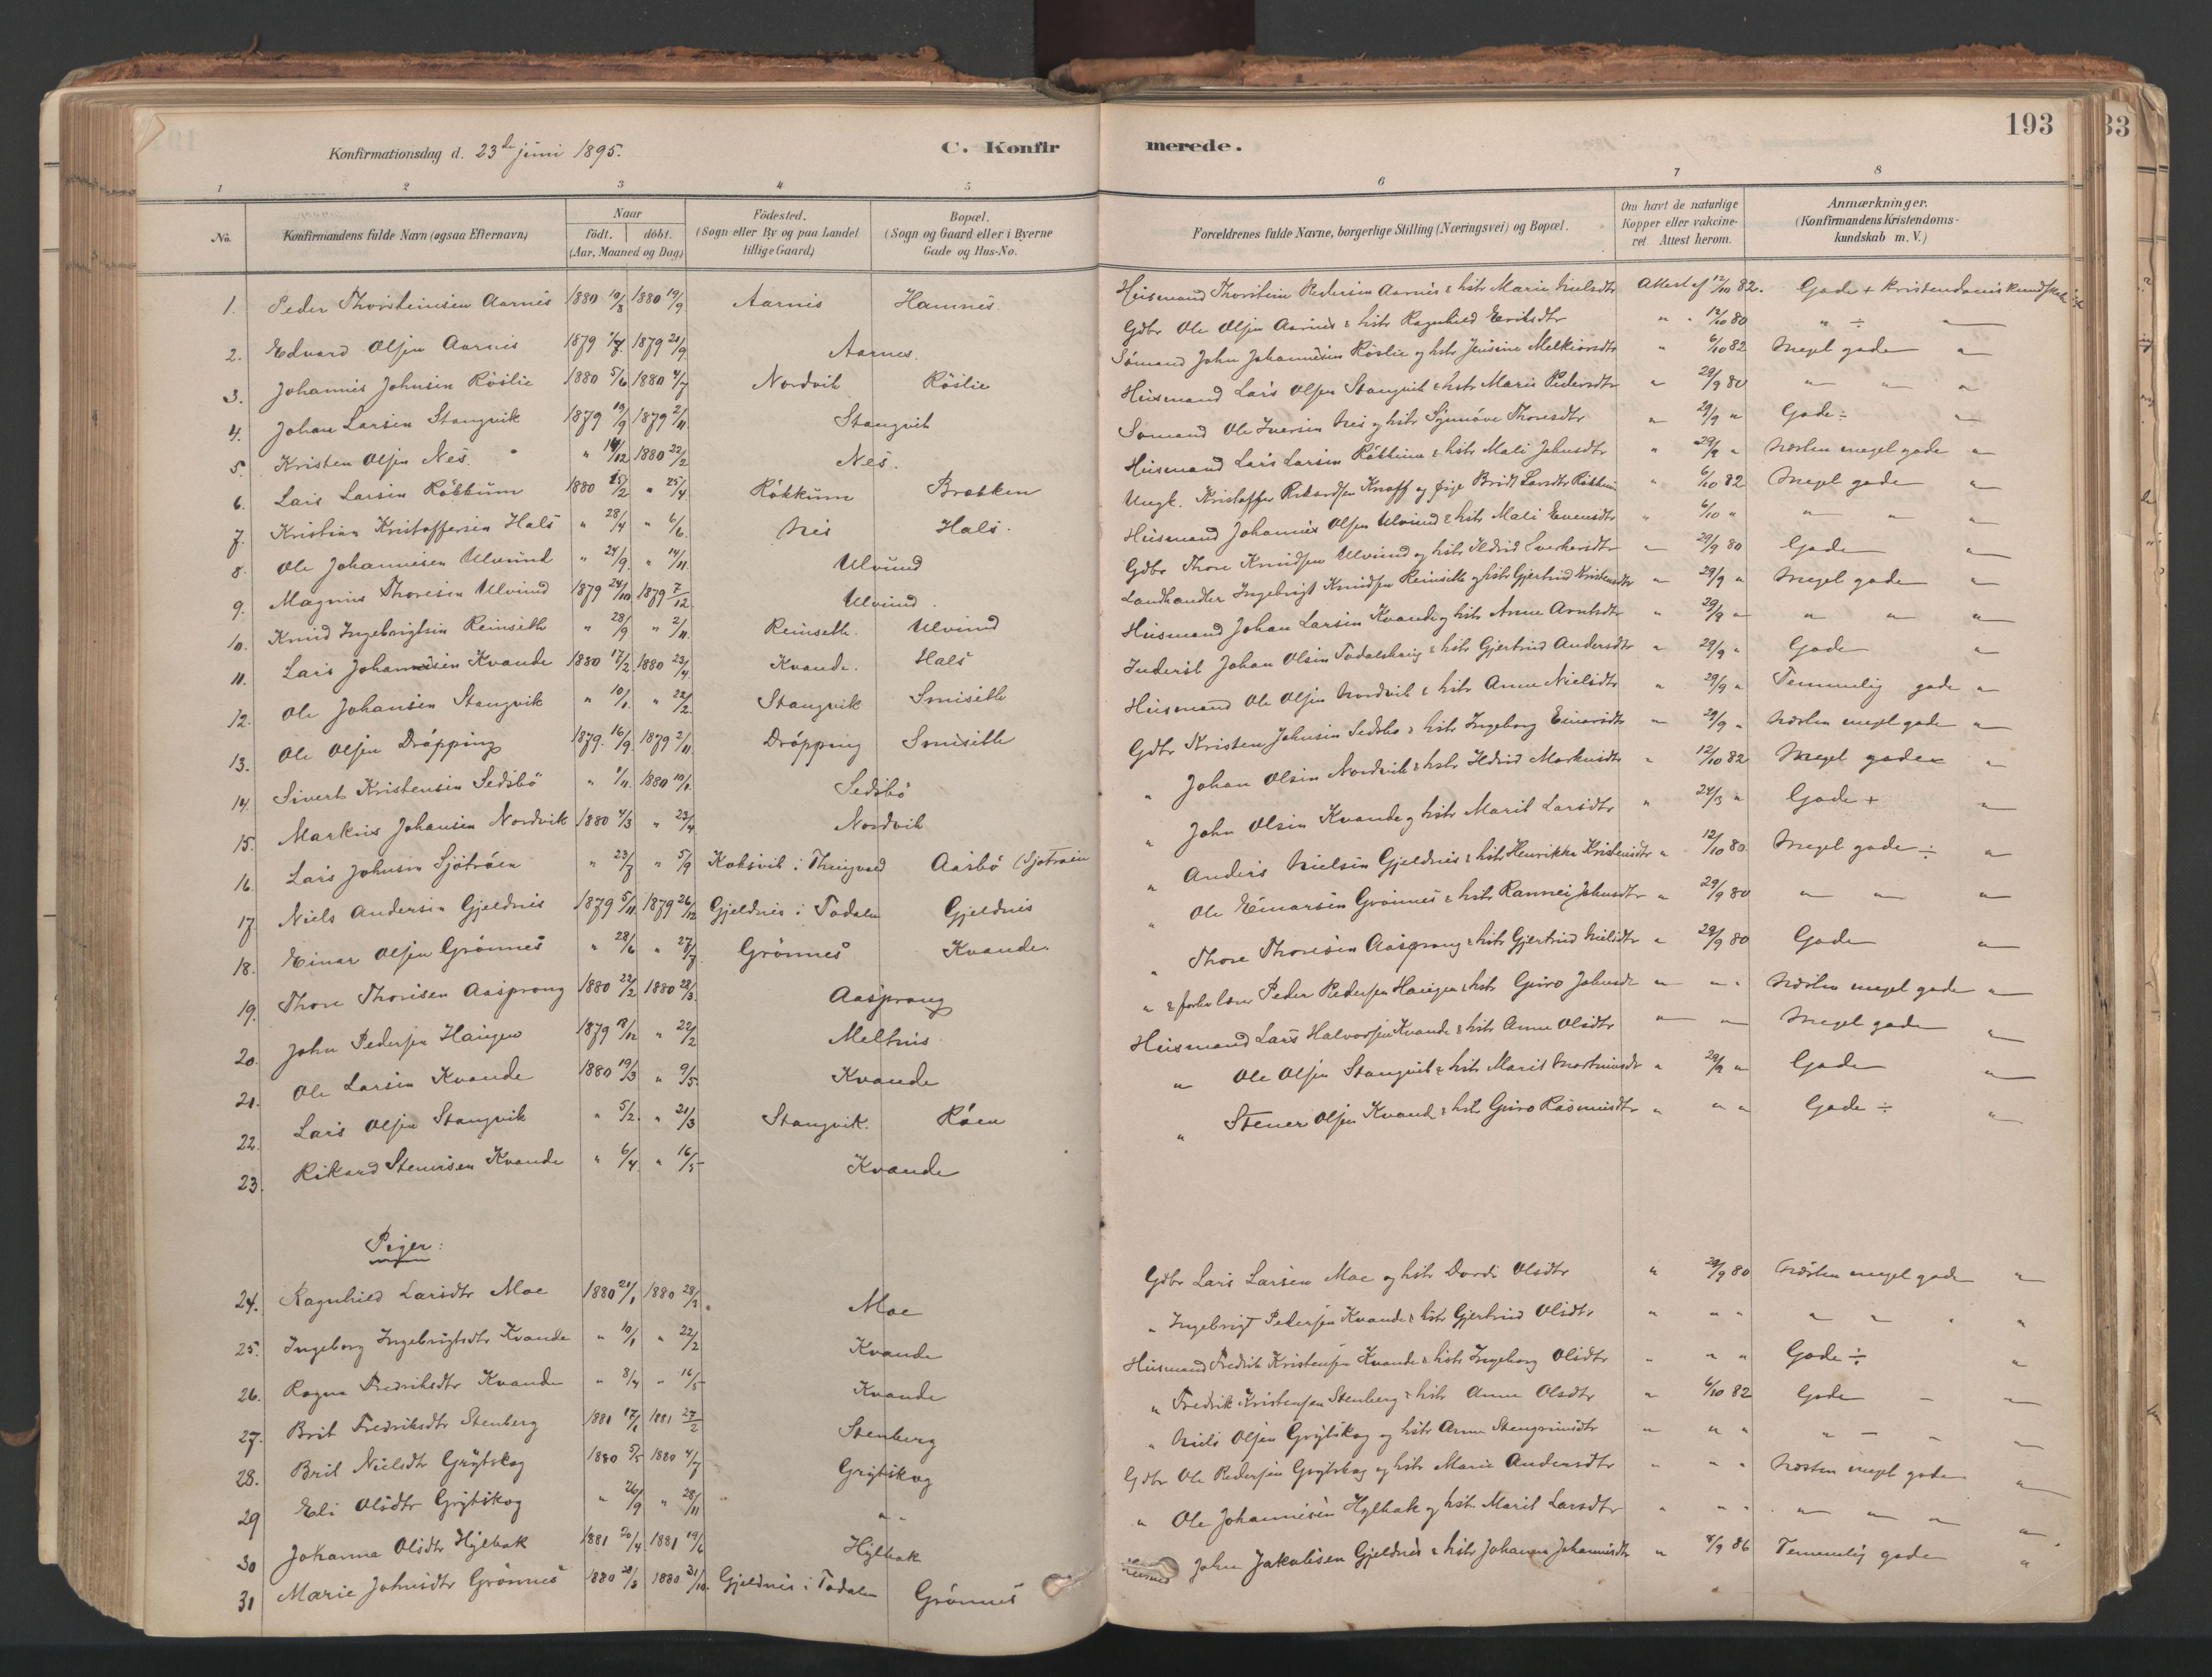 Konfirmationsdag d. 23de juni 1895.
C. Konfirmerede.
193
33
1 2 3 4 5 6 7 8
No.
Konfirmandens fulde Navn (ogsaa Efternavn)
Naar
födt. döbt.
(Aar, Maaned og Dag)
Födested.
(Sogn eller By og paa Landet
tillige Gaard)
Bopæl.
(Sogn og Gaard eller i Byerne
Gade og Hus-No.
Forældrenes fulde Navne, borgerlige Stilling (Næringsvei) og Bopæl.
Om havt de naturlige
Kopper eller vakcine-
ret. Attest herom.
Anmærkninger.
(Konfirmandens Kristendoms-
kundskab m. V.)
1. Peder Thorsteinsen Aarnes 1880 10/8 1880 19/9 Aarnes Hamnes. Husmand Thorstein Pedersen Aarnes & hstr Marie Nielsdtr Attest af 12/10 82. Gode + Kristendomskundskab
2. Edvard Olsen Aarnes 1879 1879 21/9 Aarnes. Gdbr Ole Olsen Aarnes & hstr Ragnhild Eriksdtr " " 12/10 80 " ÷ "
3. Johannes Johnsen Röslie 1880 5/6 1880 4/7 Nordvik Röslie Sömand John Johannesen Röslie og hstr Jensine Melkiorsdtr " 6/10 82 Meget gode "
4. Johan Larsen Stangvik 1879 19/9 1879 2/11 Stangvik Husmand Lars Olsen Stangvik & hstr Marie Pedersdtr " 29/9 80 " " "
5. Kristen Olsen Nes. " 14/12 1880 22/2 Nes. Sömand Ole Iversen Nes og hstr Synnöve Thoresdtr " 29/9 " Gode ÷ "
6. Lars Larsen Rökkum 1880 15/2 " 25/4 Rökkum Brækken Husmand Lars Larsen Rökkum & hstr Mali Johnsdtr " 29/9 " Næsten meget gode "
7. Kristian Kristoffersen Hals " 28/4 " 6/6. Nes Hals. Ungk. Kristoffer Rikardsen Knoff og pige Brit Larsdtr Rökkum " 6/10 82 Meget gode "
8. Ole Johannesen Ulvund " 24/9. " 14/11. Ulvund Husmand Johannes Olsen Ulvund & hstr Mali Evensdtr " 6/10 " " " "
9. Magnus Thoresen Ulvund 1879 24/10 1879 7/12 Ulvund. Gdbr Thore Knudsen Ulvund og hstr Ildrid Sverkersdtr " 29/9 80 Gode "
10. Knud Ingebrigtsen Reinseth " 28/9 " 2/11. Reinseth. Ulvund Landhandler Ingebrigt Knudsen Reinseth og hstr Gjertrud Kristensdtr " 29/9 " Meget gode "
11. Lars Johansen Kvande 1880 17/2 1880 23/4 Kvande. Hals Husmand Johan Larsen Kvande og hstr Anne Arntsdtr " 29/9 " " " "
12. Ole Johansen Stangvik " 10/1. " 22/2. Stangvik Smiseth Inderst Johan Olsen Todalshaug & hstr Gjertrud Andersdtr " 29/9 " Gode "
13. Ole Olsen Dröpping 1879. 16/9. 1879 2/11 Dröpping Smiseth Husmand Ole Olsen Nordvik & hstr Anne Nielsdtr " 29/9 " Temmelig gode "
14. Sivert Kristensen Sedsbö " 1/11. 1880 10/1. Sedsbö Gdbr Kristen Johnsen Sedsbö & hstr Ingeborg Einarsdtr " 29/9 " Næsten meget gode "
15. Markus Johansen Nordvik 1880 4/3 " 23/4 Nordvik " Johan Olsen Nordvik & hstr Ildrid Markusdtr " 12/10 82 Meget gode "
16. Lars Johnsen Sjötröen " 23/7 " 5/9 Koksvik i Thingvold Aasbö (Sjötröen " John Olsen Kvande og hstr Marit Larsdtr " 24/3 " Gode + "
17. Niels Andersen Gjeldnes 1879 5/11 1879 26/12 Gjeldnes i Todalen Gjeldnes " Anders Nielsen Gjeldnes & hstr Henrikke Kristensdtr " 12/10 80. Meget gode ÷ "
18. Einar Olsen Grönnes " 28/6 " 27/7. Grönnes Kvande. " Ole Einarsen Grönnes & hstr Rannei Johnsdtr " 29/9 80 " " "
19. Thore Thoresen Aasprong 1880 22/2 1880 28/3. Aasprong " Thore Thoresen Aasprong & hstr Gjertrud Nielsdtr " 29/9 80 Gode "
20. John Pedersen Haugen 1879 18/12 " 22/2 Melhus. " & forhv lærer Peder Pedersen Haugen & hstr Guro Johnsdtr " " " Næsten meget gode "
21. Ole Larsen Kvande 1880 19/3 " 9/5. Kvande Husmand Lars Halvorsen Kvande & hstr Anne Olsdtr " " Meget gode "
22. Lars Olsen Stangvik " 5/2. " 21/3 Stangvik. Röen " Ole Olsen Stangvik & hstr Marit Martinusdtr " 29/9 " Gode "
23. Rikard Stenersen Kvande " 6/4 " 16/5 Kvande " Stener Olsen Kvande & hstr Guro Rasmusdtr " " " Gode ÷ "
Piger:
24. Ragnhild Larsdtr Moe 1880 21/1 1880 28/3. Moe Gdbr Lars Larsen Moe og hstr Dordi Olsdtr " 29/9 80 Næsten meget gode "
25. Ingeborg Ingebrigtsdtr Kvande " 10/1 " 22/2 Kvande " Ingebrigt Pedersen Kvande & hstr Gjertrud Olsdtr " " " " " "
26. Ragna Fredriksdtr Kvande " 8/4 " 16/5 Kvande Husmand Fredrik Kristensen Kvande & hstr Ingeborg Olsdtr " " " Gode ÷ "
27. Brit Fredriksdtr Stenberg 1881 17/1 1881 27/2 Stenberg " Fredrik Kristensen Stenberg & hstr Anne Olsdtr " 6/10 82 Gode "
28. Brit Nielsdtr Grytskog 1880 5/5 1880 4/7 Grytskog " Niels Olsen Grytskog og hstr Anne Stengrimsdtr " " " " "
29 Eli Olsdtr Grytskog " 26/9 " 28/11 " " Gdbr Ole Pedersen Grytskog og hstr Marie Andersdtr " " " Næsten meget gode "
30 Johanna Olsdtr Hylbak 1881 20/4. 1881 19/6 Hylbak " Ole Johannesen Hylbak og hstr Marit Larsdtr " " " " " "
31 Marie Johnsdtr Grönnes 1880 28/8 1880 31/10. Gjeldnes i Todalen Grönnes Husmd John Jakobsen Gjeldnes & hstr Johanna Johannesdtr " 8/9 86 Temmelig gode "